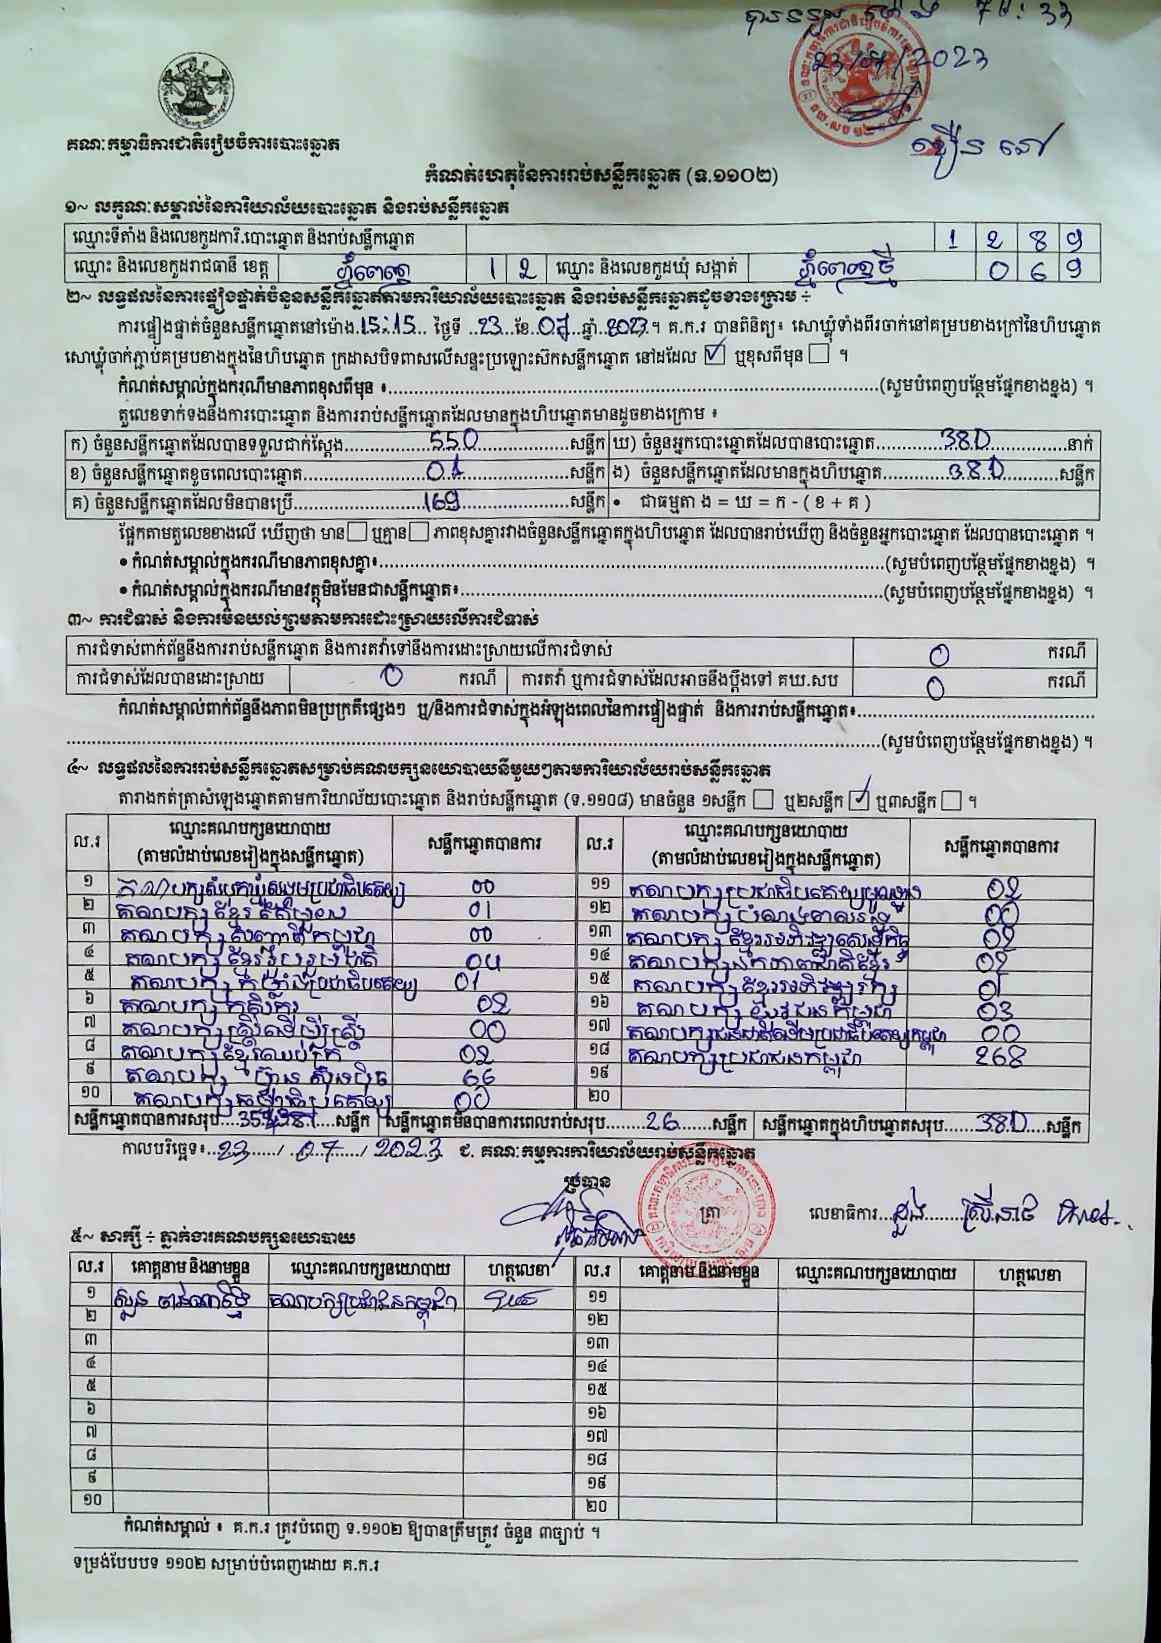 23/07/2023
គណៈកម្មាធិការជាតិរៀបចំការបោះឆ្នោត
កំណត់ហេតុនៃការរាប់សន្លឹកឆ្នោត (ទ.១១០២)
១~ លក្ខណៈសម្គាល់នៃការិយាល័យបោះឆ្នោត និងរាប់សន្លឹកឆ្នោត
ឈ្មោះទីតាំង និងលេខកូដការិ.បោះឆ្នោត និងរាប់សន្លឹកឆ្នោត 1 2 8 9
ឈ្មោះ និងលេខកូដរាជធានី ខេត្ត ភ្នំពេញ 1 2 ឈ្មោះ និងលេខកូដឃុំ សង្កាត់ ភ្នំពេញថ្មី 0 6 9
២~ លទ្ធផលនៃការផ្ទៀងផ្ទាត់ចំនួនសន្លឹកឆ្នោតតាមការិយាល័យបោះឆ្នោត និងរាប់សន្លឹកឆ្នោតដូចខាងក្រោម ÷
ការផ្ទៀងផ្ទាត់ចំនួនសន្លឹកឆ្នោតនៅម៉ោង.15:15... ថ្ងៃទី ..23..ខែ.07...ឆ្នាំ.2023.។ គ.ក.រ បានពិនិត្យ៖ សោឃ្លុំទាំងពីរចាក់នៅគម្របខាងក្រៅនៃហិបឆ្នោត
សោឃ្លុំចាក់ភ្ជាប់គម្របខាងក្នុងនៃហិបឆ្នោត ក្រដាសបិទពាសលើសន្ទះប្រឡោះស៊កសន្លឹកឆ្នោត នៅដដែល ☑ ឬខុសពីមុន ☐ ។
កំណត់សម្គាល់ក្នុងករណីមានភាពខុសពីមុន ៖..........(សូមបំពេញបន្ថែមផ្នែកខាងខ្នង) ។
តួលេខទាក់ទងនឹងការបោះឆ្នោត និងការរាប់សន្លឹកឆ្នោតដែលមានក្នុងហិបឆ្នោតមានដូចខាងក្រោម ៖
ក) ចំនួនសន្លឹកឆ្នោតដែលបានទទួលជាក់ស្តែង......550......សន្លឹក ឃ) ចំនួនអ្នកបោះឆ្នោតដែលបានបោះឆ្នោត......380......នាក់
ខ) ចំនួនសន្លឹកឆ្នោតខូចពេលបោះឆ្នោត......01......សន្លឹក ង) ចំនួនសន្លឹកឆ្នោតដែលមានក្នុងហិបឆ្នោត......380......សន្លឹក
គ) ចំនួនសន្លឹកឆ្នោតដែលមិនបានប្រើ......169......សន្លឹក • ជាធម្មតា ង = ឃ = ក - ( ខ + គ )
ផ្អែកតាមតួលេខខាងលើ ឃើញថា មាន☐ ឬគ្មាន☐ ភាពខុសគ្នារវាងចំនួនសន្លឹកឆ្នោតក្នុងហិបឆ្នោត ដែលបានរាប់ឃើញ និងចំនួនអ្នកបោះឆ្នោត ដែលបានបោះឆ្នោត ។
• កំណត់សម្គាល់ក្នុងករណីមានភាពខុសគ្នា៖..........(សូមបំពេញបន្ថែមផ្នែកខាងខ្នង) ។
• កំណត់សម្គាល់ក្នុងករណីមានវត្ថុមិនមែនជាសន្លឹកឆ្នោត៖..........(សូមបំពេញបន្ថែមផ្នែកខាងខ្នង) ។
៣~ ការជំទាស់ និងការមិនយល់ព្រមតាមការដោះស្រាយលើការជំទាស់
ការជំទាស់ពាក់ព័ន្ធនឹងការរាប់សន្លឹកឆ្នោត និងការតវ៉ាទៅនឹងការដោះស្រាយលើការជំទាស់ 0 ករណី
ការជំទាស់ដែលបានដោះស្រាយ 0 ករណី ការតវ៉ា ឬការជំទាស់ដែលអាចនឹងប្តឹងទៅ គឃ.សប 0 ករណី
កំណត់សម្គាល់ពាក់ព័ន្ធនឹងភាពមិនប្រក្រតីផ្សេងៗ ឬ/និងការជំទាស់ក្នុងអំឡុងពេលនៃការផ្ទៀងផ្ទាត់ និងការរាប់សន្លឹកឆ្នោត៖..........
..........(សូមបំពេញបន្ថែមផ្នែកខាងខ្នង) ។
៤~ លទ្ធផលនៃការរាប់សន្លឹកឆ្នោតសម្រាប់គណបក្សនយោបាយនីមួយៗតាមការិយាល័យរាប់សន្លឹកឆ្នោត
តារាងកត់ត្រាសំឡេងឆ្នោតតាមការិយាល័យបោះឆ្នោត និងរាប់សន្លឹកឆ្នោត (ទ.១១០៨) មានចំនួន ១សន្លឹក ☐ ឬ២សន្លឹក ☑ ឬ៣សន្លឹក ☐ ។
ល.រ ឈ្មោះគណបក្សនយោបាយ (តាមលំដាប់លេខរៀងក្នុងសន្លឹកឆ្នោត) សន្លឹកឆ្នោតបានការ ល.រ ឈ្មោះគណបក្សនយោបាយ (តាមលំដាប់លេខរៀងក្នុងសន្លឹកឆ្នោត) សន្លឹកឆ្នោតបានការ
១ គណបក្សសំបុកឃ្មុំសង្គមប្រជាធិបតេយ្យ 00 ១១ គណបក្សប្រជាធិបតេយ្យមូលដ្ឋាន 02
២ គណបក្ស ខ្មែរ តែមួយ 01 ១២ គណបក្ស 00
៣ គណបក្ស សញ្ជាតិកម្ពុជា 00 ១៣ គណបក្ស ខ្មែរអភិវឌ្ឍសេដ្ឋកិច្ច 02
៤ គណបក្ស ខ្មែររួបរួមជាតិ 04 ១៤ គណបក្សឯកភាពជាតិខ្មែរ 02
៥ គណបក្ស កម្លាំងប្រជាធិបតេយ្យ 01 ១៥ គណបក្សខ្មែរអភិរក្ស 01
៦ គណបក្ស កសិករ 02 ១៦ គណបក្ស យុវជនកម្ពុជា 03
៧ គណបក្សស្ត្រីដើម្បីស្ត្រី 00 ១៧ គណបក្សជនជាតិដើមប្រជាធិបតេយ្យកម្ពុជា 00
៨ គណបក្ស ខ្មែរឈប់ក្រ 02 ១៨ គណបក្សប្រជាជនកម្ពុជា 268
៩ គណបក្ស ហ៊្វុនស៊ិនប៉ិច 66 ១៩
១០ គណបក្សធម្មាធិបតេយ្យ 00 ២០
សន្លឹកឆ្នោតបានការសរុប.... ....សន្លឹក សន្លឹកឆ្នោតមិនបានការពេលរាប់សរុប......26......សន្លឹក សន្លឹកឆ្នោតក្នុងហិបឆ្នោតសរុប......380....សន្លឹក
កាលបរិច្ឆេទ៖..23...../..07...../..2023 ជ. គណៈកម្មការការិយាល័យរាប់សន្លឹកឆ្នោត
ប្រធាន
ត្រា
លេខាធិការ...ដួង
៥~ សាក្សី ÷ ភ្នាក់ងារគណបក្សនយោបាយ
ល.រ គោត្តនាម និងនាមខ្លួន ឈ្មោះគណបក្សនយោបាយ ហត្ថលេខា ល.រ គោត្តនាម និងនាមខ្លួន ឈ្មោះគណបក្សនយោបាយ ហត្ថលេខា
១ គណបក្សប្រជាជនកម្ពុជា ១១
២ ១២
៣ ១៣
៤ ១៤
៥ ១៥
៦ ១៦
៧ ១៧
៨ ១៨
៩ ១៩
១០ ២០
កំណត់សម្គាល់ ៖ គ.ក.រ ត្រូវបំពេញ ទ.១១០២ ឱ្យបានត្រឹមត្រូវ ចំនួន ៣ច្បាប់ ។
ទម្រង់បែបបទ ១១០២ សម្រាប់បំពេញដោយ គ.ក.រ